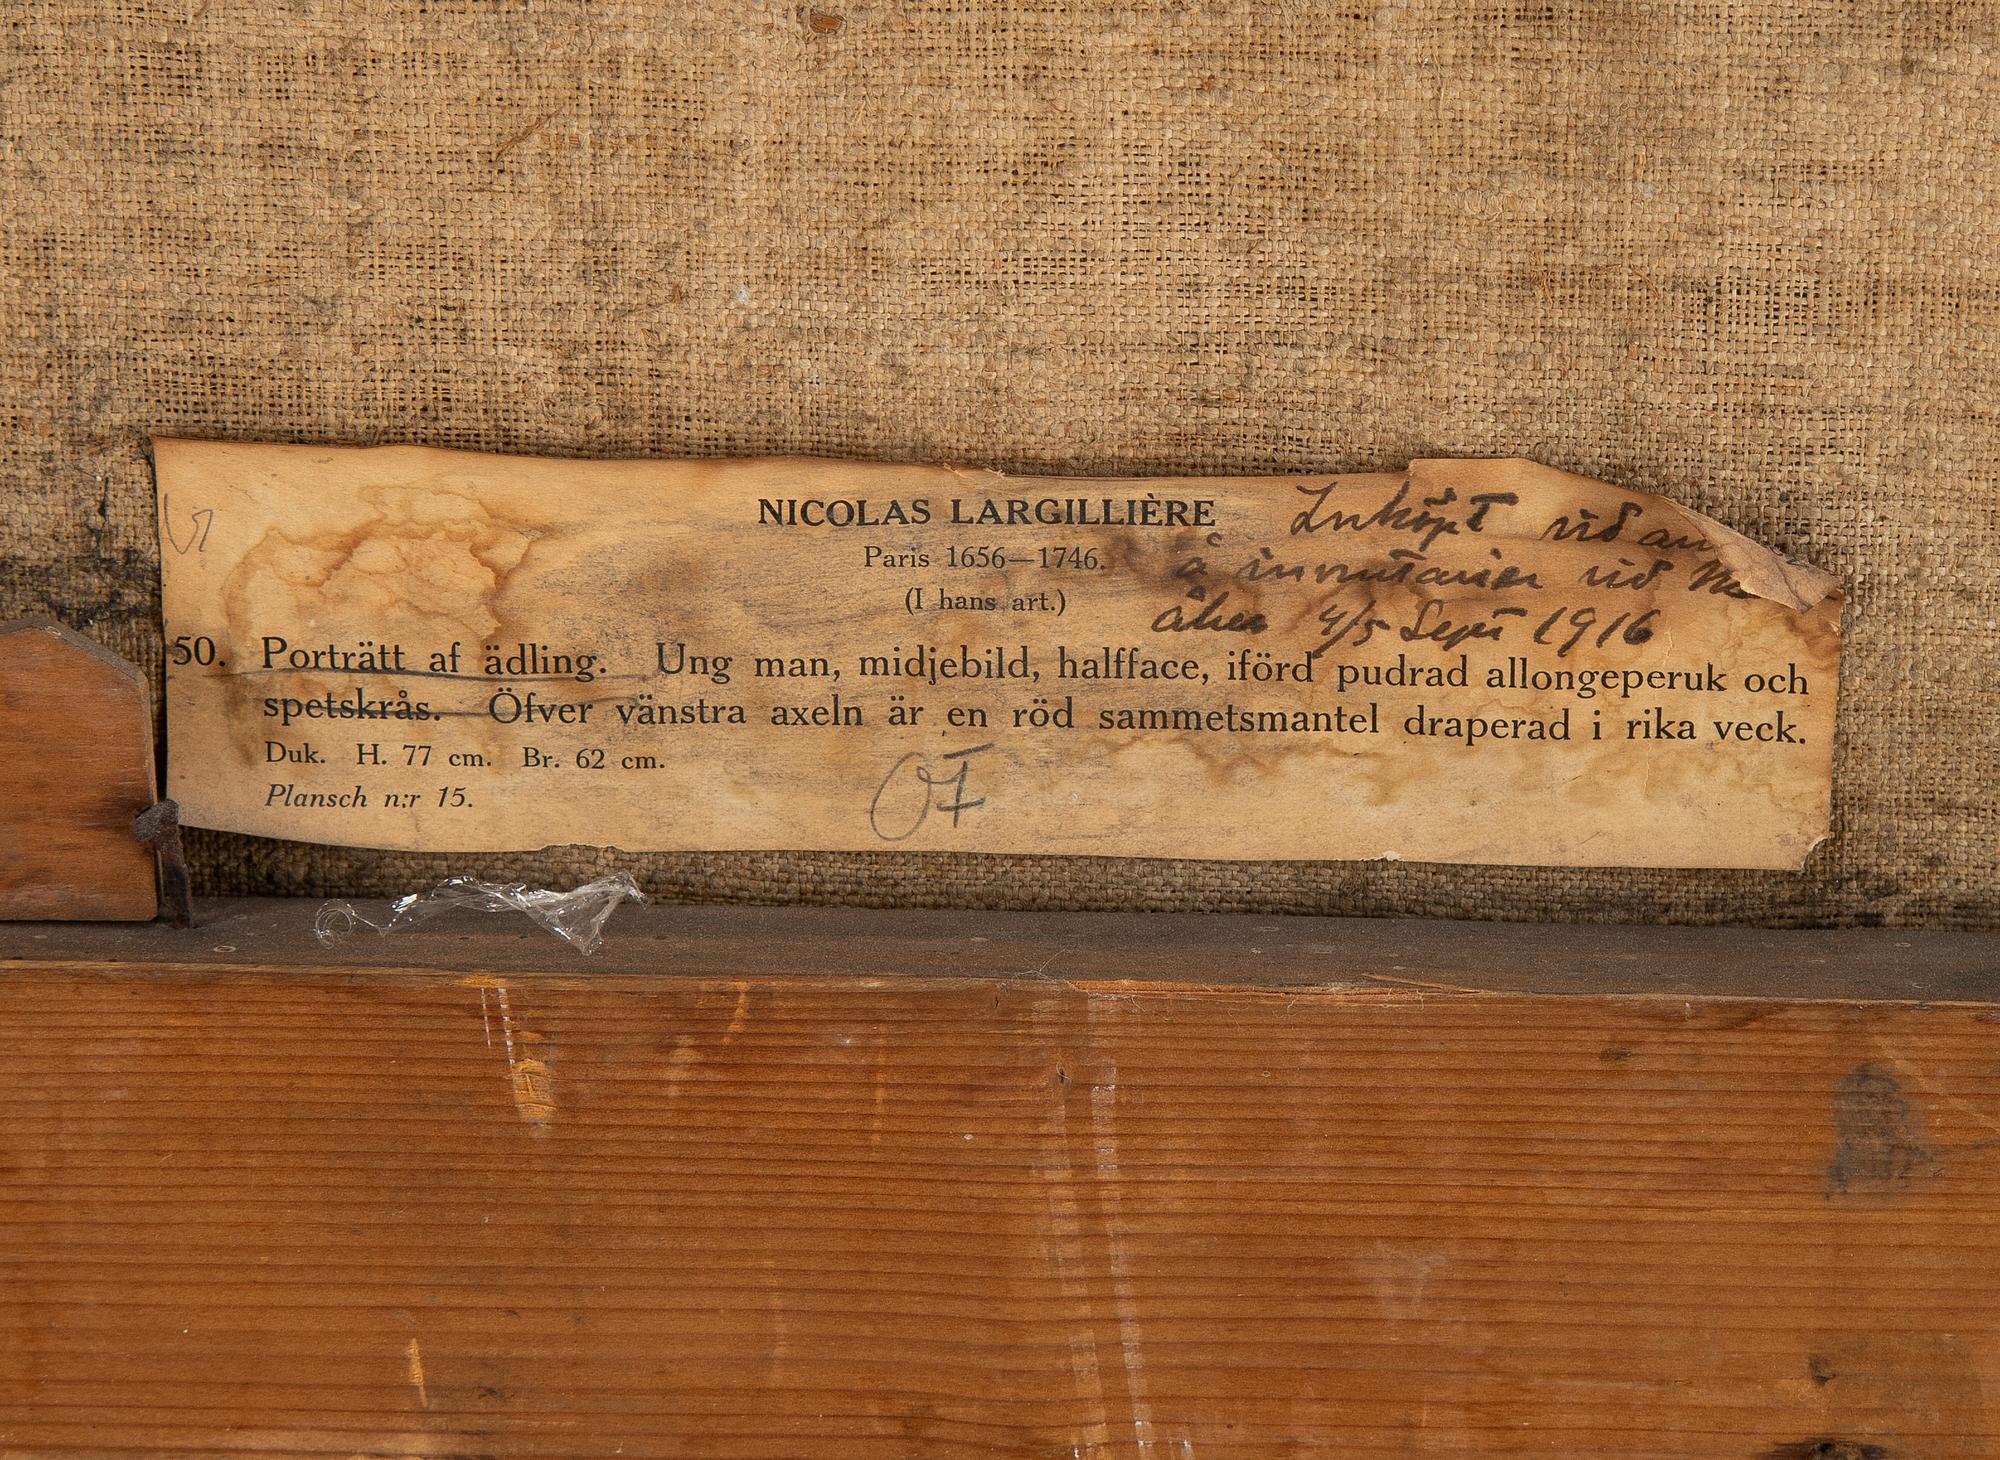 NICOLAS LARGILLIÈRE
Inköpt vid
Paris 1656—1746.
å inventarier vid
(I hans art.)
4/5 Sept 1916
50. Porträtt af ädling. Ung man, midjebild, halfface, iförd pudrad allongeperuk och
spetskrås. Öfver vänstra axeln är en röd sammetsmantel draperad i rika veck.
Duk. H. 77 cm. Br. 62 cm.
Plansch n:r 15.